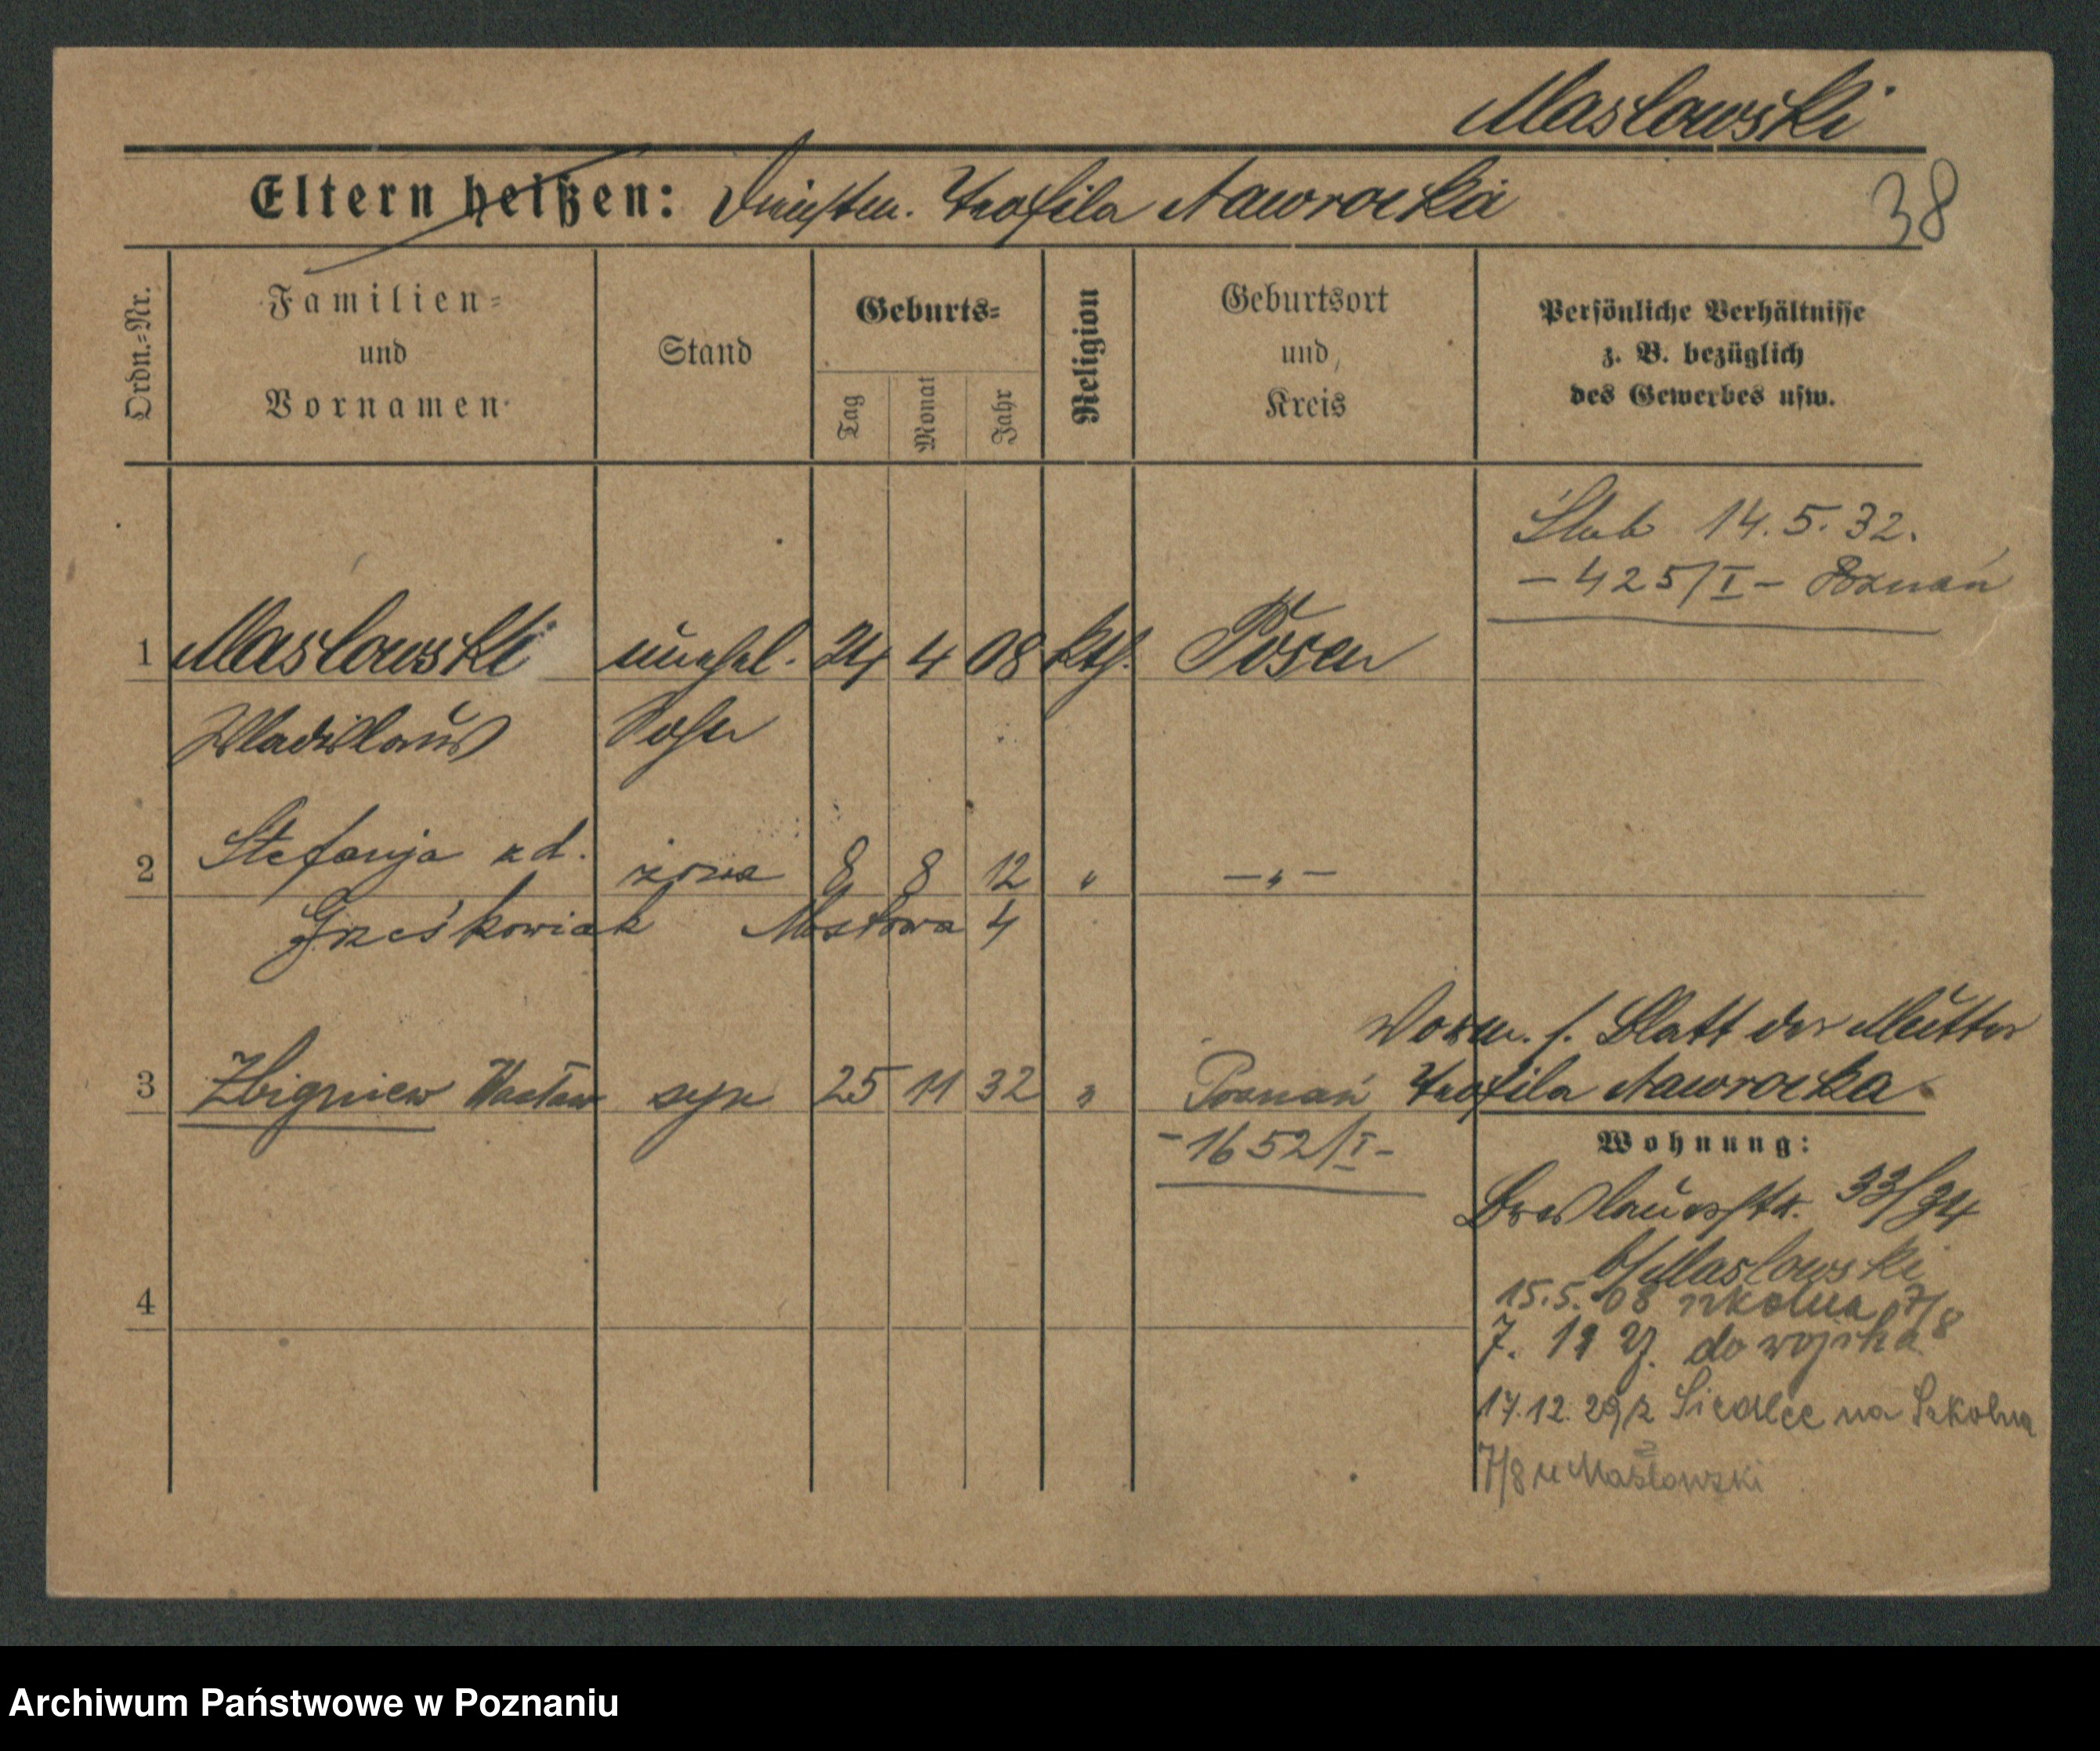 Maslowski
Eltern heißen: Teofila Nawrocka
38
Ordn.=Nr.
Familien=
und
Vornamen
Stand
Geburts=
Tag
Monat
Jahr
Religion
Geburtsort
und
Kreis
Persönliche Verhältnisse
z. B. bezüglich
des Gewerbes usw.
Ślub 14.5.32.
– 425/I – Poznań
1 Maslowski unehel. 24 4 08 kth. Posen
Wladislaus Sohn
2 Stefanja z d. żona 8 8 12 " – " –
Grześkowiak Mostowa 4
Vorm. s. Blatt der Mutter
3 Zbigniew Wacław syn 25 11 32 " Poznań Teofila Nawrocka
– 1652/I –
Wohnung:
Breslauerstr. 33/34
b/Maslowski
4
15.5.08 szkolna 7/8
7. 11 27. do wojska
17.12.29 z Siedlec na Szkolna
7/8 u Masłowski
Archiwum Państwowe w Poznaniu